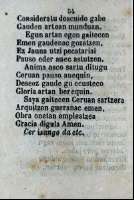 54
Consideratu dezcudo gabe
Gauden artean munduan,
Egun artan egon gaitecen
Emen gaudenac gozatzen,
Ez Jauna utzi pecatariai
Pauso eder asec astutzen.
Anima asco saria ditugu
Ceruan pauso anequin,
Deseoz gaude go ecusteco
Gloria artan berequin.
Saya gaitecen Ceruan sartzera
Arquitzen gueranac emen,
Obra onetan empleatzea
Gracia digula Amen.
Cer izango da etc.